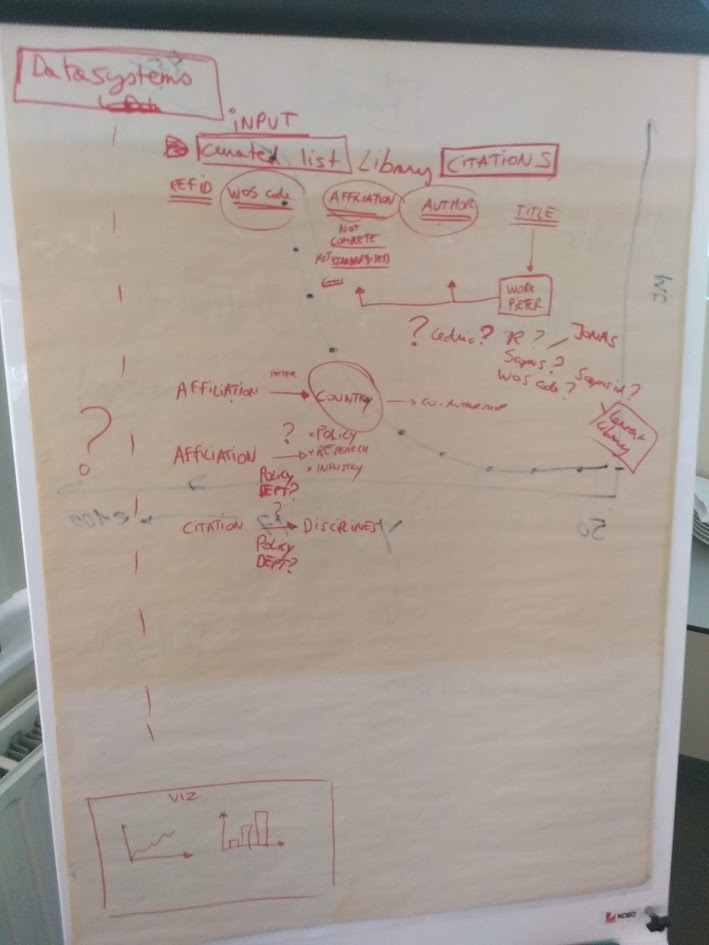 Datasystems
INPUT
Curated list Library CITATIONS
REFID WOS code AFFILIATION AUTHOR TITLE
NOT
COMPLETE
NOT STANDARDISED
WORK
PIETER
? Cedric? R ? / JONAS
Scopus? Scopus id?
WOS code?
AFFILIATION PIETER COUNTRY CO-AUTHORSHIP
Current
Library
?
AFFILIATION ? POLICY
RESEARCH
INDUSTRY
POLICY
DEPT?
?
CITATION DISCIPLINES
POLICY
DEPT?
50
VIZ
NOBO